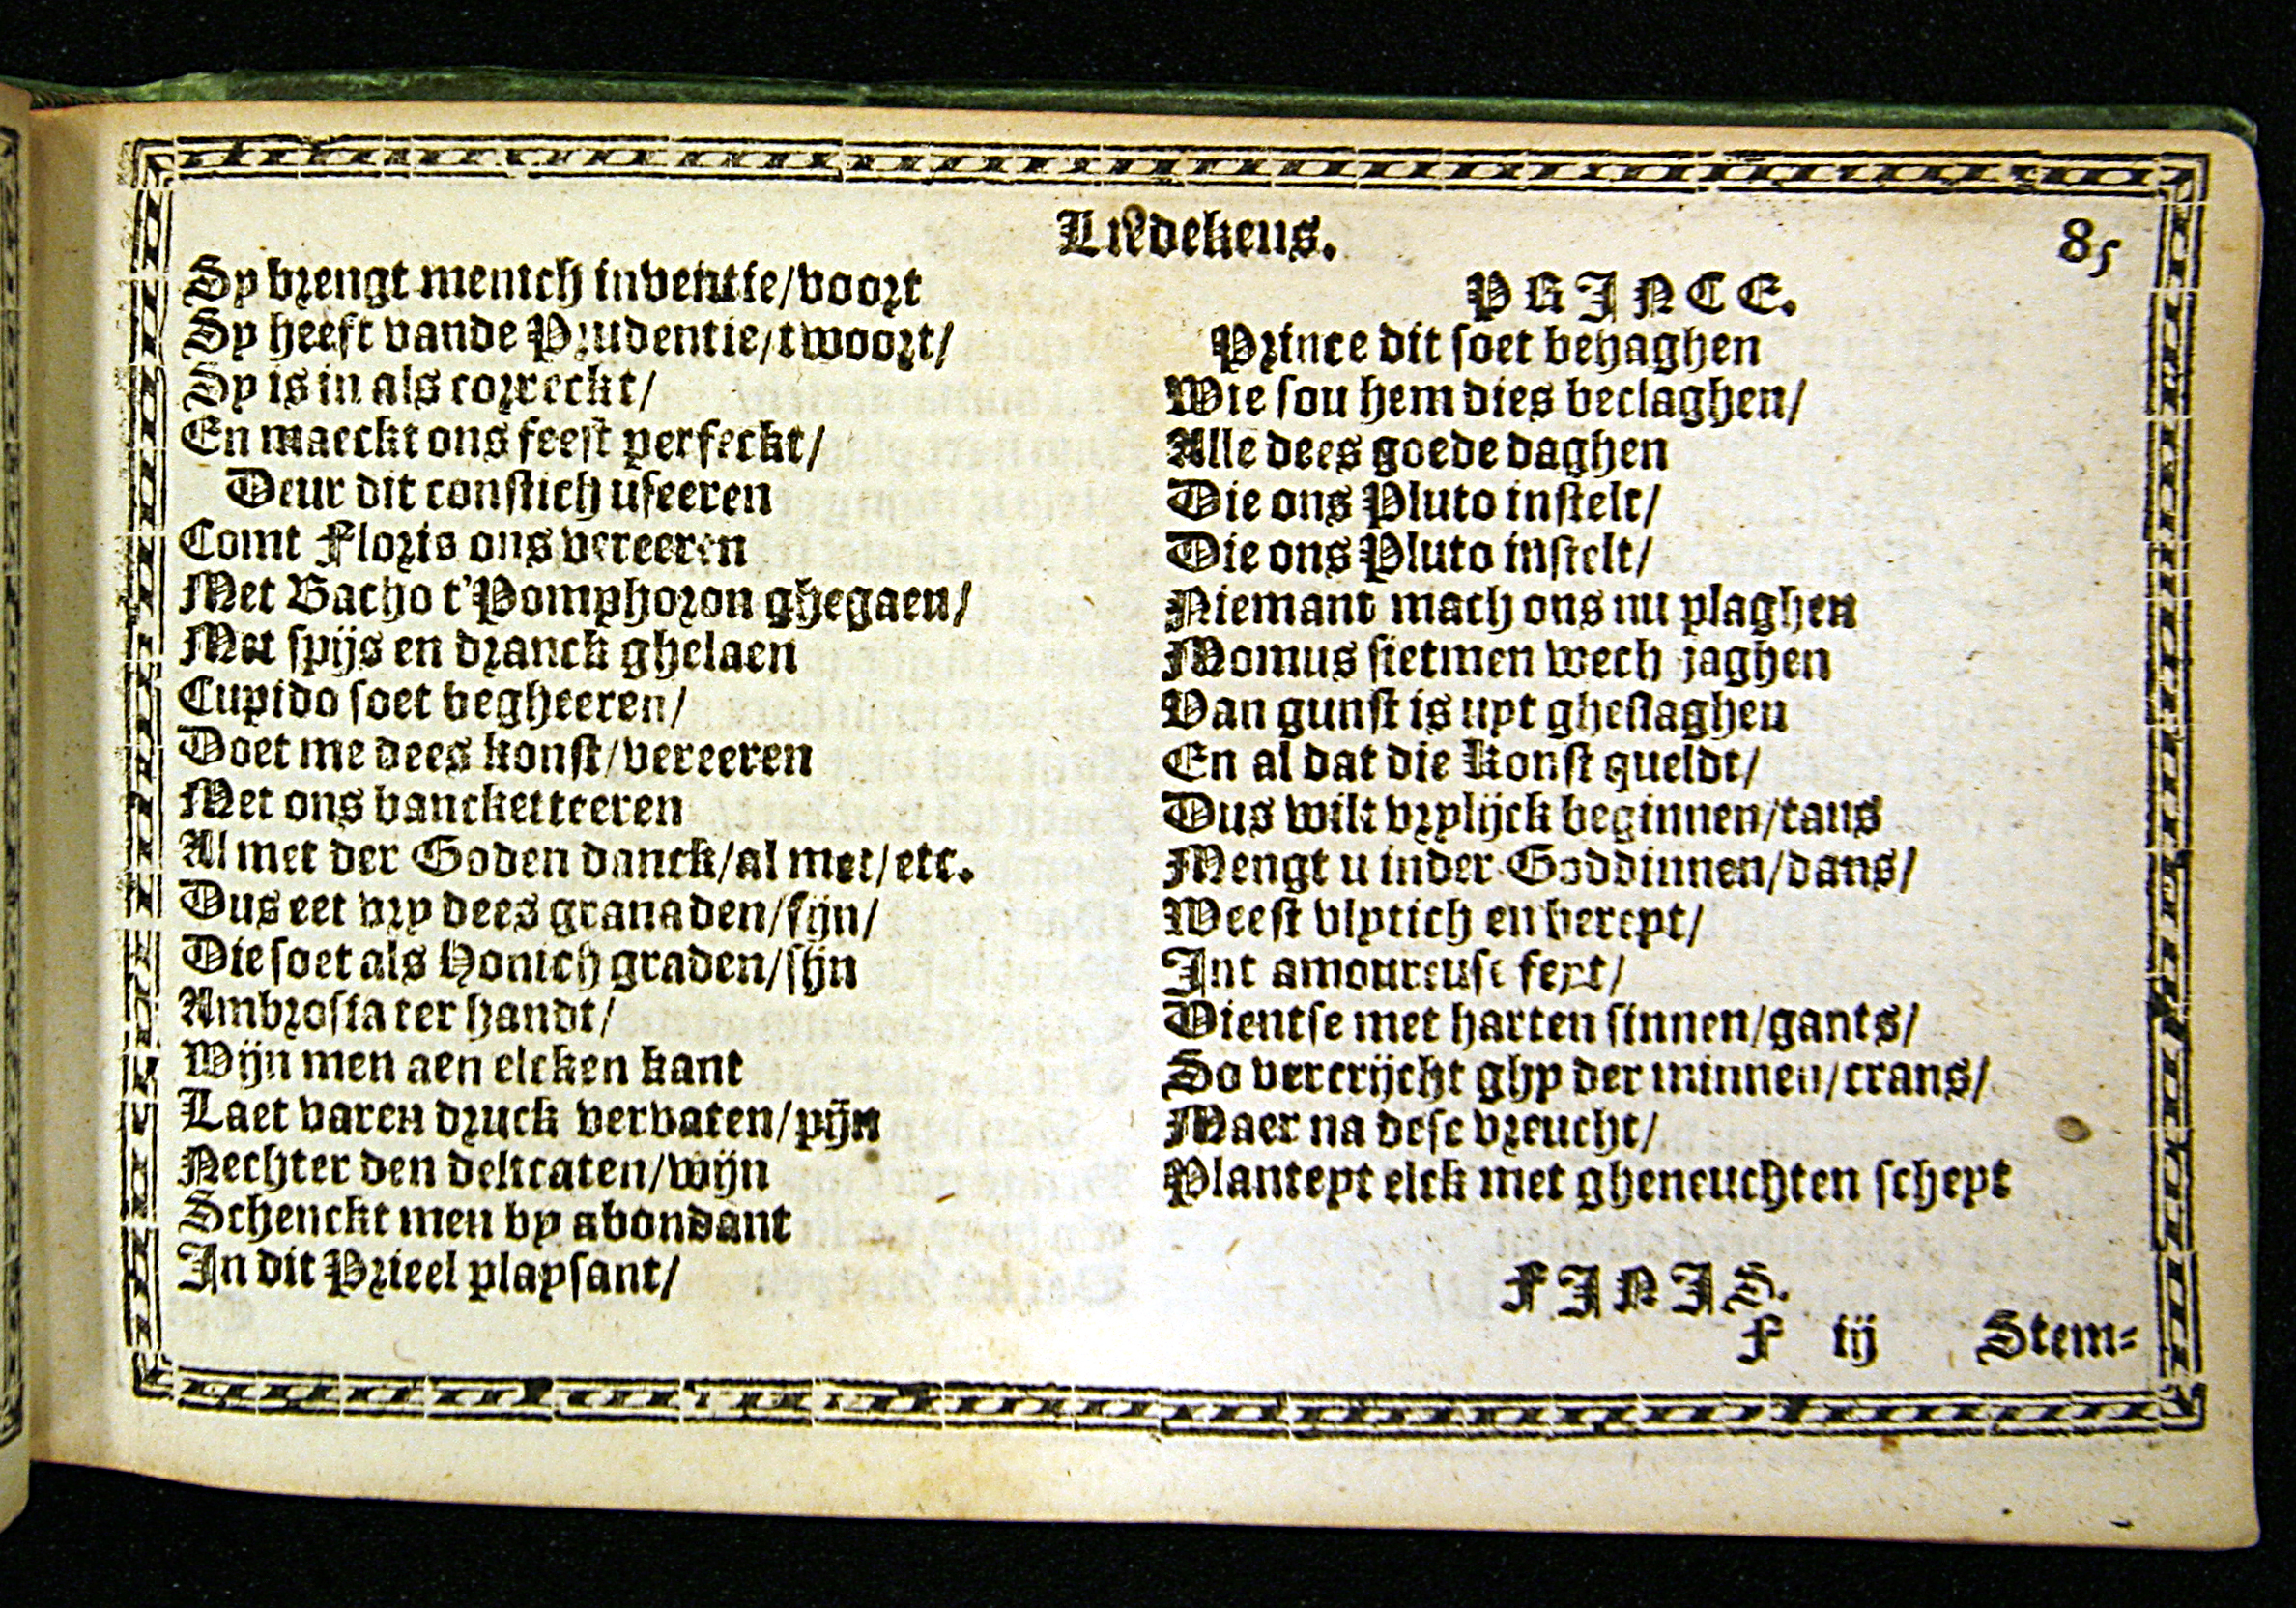 Liedekens.
85
Sy brengt menich inventie/voort
Sy heeft vande Prudentie/twoort/
Sy is in als correckt/
En maeckt ons feest perfeckt/
Deur dit constich useeren
Comt Floris ons vereeren
Met Bacho t'Pomphoron ghegaen/
Met spijs en dranck ghelaen
Cupido soet begheeren/
Doet me dees konst/vereeren
Met ons banckетteeren
Al met der Goden danck/al met/etc.
Dus eet vry dees granaden/fijn/
Die soet als Honich graden/sijn
Ambrosia ter handt/
Wijn men aen elcken kant
Laet varen druck vervaten/pijn
Nechter den delicaten/wijn
Schenckt men by abondant
In dit Prieel playsant/
PRINCE.
Prince dit soet behaghen
Wie sou hem dies beclaghen/
Alle dees goede daghen
Die ons Pluto instelt/
Die ons Pluto instelt/
Niemant mach ons nu plaghen
Momus sietmen wech jaghen
Van gunst is uyt gheslaghen
En al dat die konst queldt/
Dus wilt vrylijck beginnen/tans
Mengt u inder Goddinnen/dans/
Weest vlytich en bereyt/
Int amoureuse feyt/
Dientse met harten sinnen/gants/
So vercrijcht ghy der minnen/crans/
Maer na dese vreucht/
Planteyt elck met gheneuchten scheyt
FINIS.
F iij Stem-